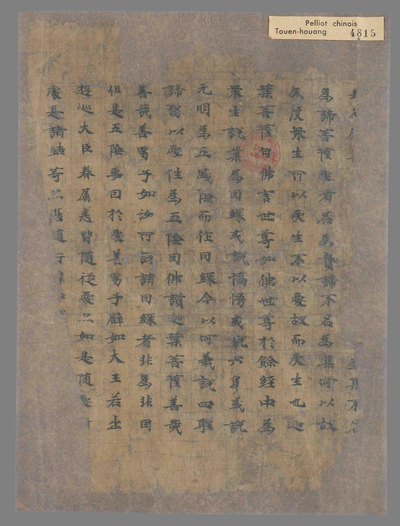 Pelliot chinois
Touen-houang 4815
為諦菩薩愛者名為實諦不名為集何以故
為度眾生所以受生不以愛故而受生也迦
葉菩薩白佛言世尊如佛世尊於餘經中為
眾生說業為因緣或說憍慢或說六觸或說
无明為五盛陰而作因緣今以何義說四聖
諦獨以愛性為五陰因佛讚迦葉菩薩善哉
善哉善男子如汝所說諸因緣者非為非因
但是五陰要因於愛善男子譬如大王若出
遊巡大臣眷屬悉皆隨從愛亦如是隨愛行
處是諸結等亦復隨行